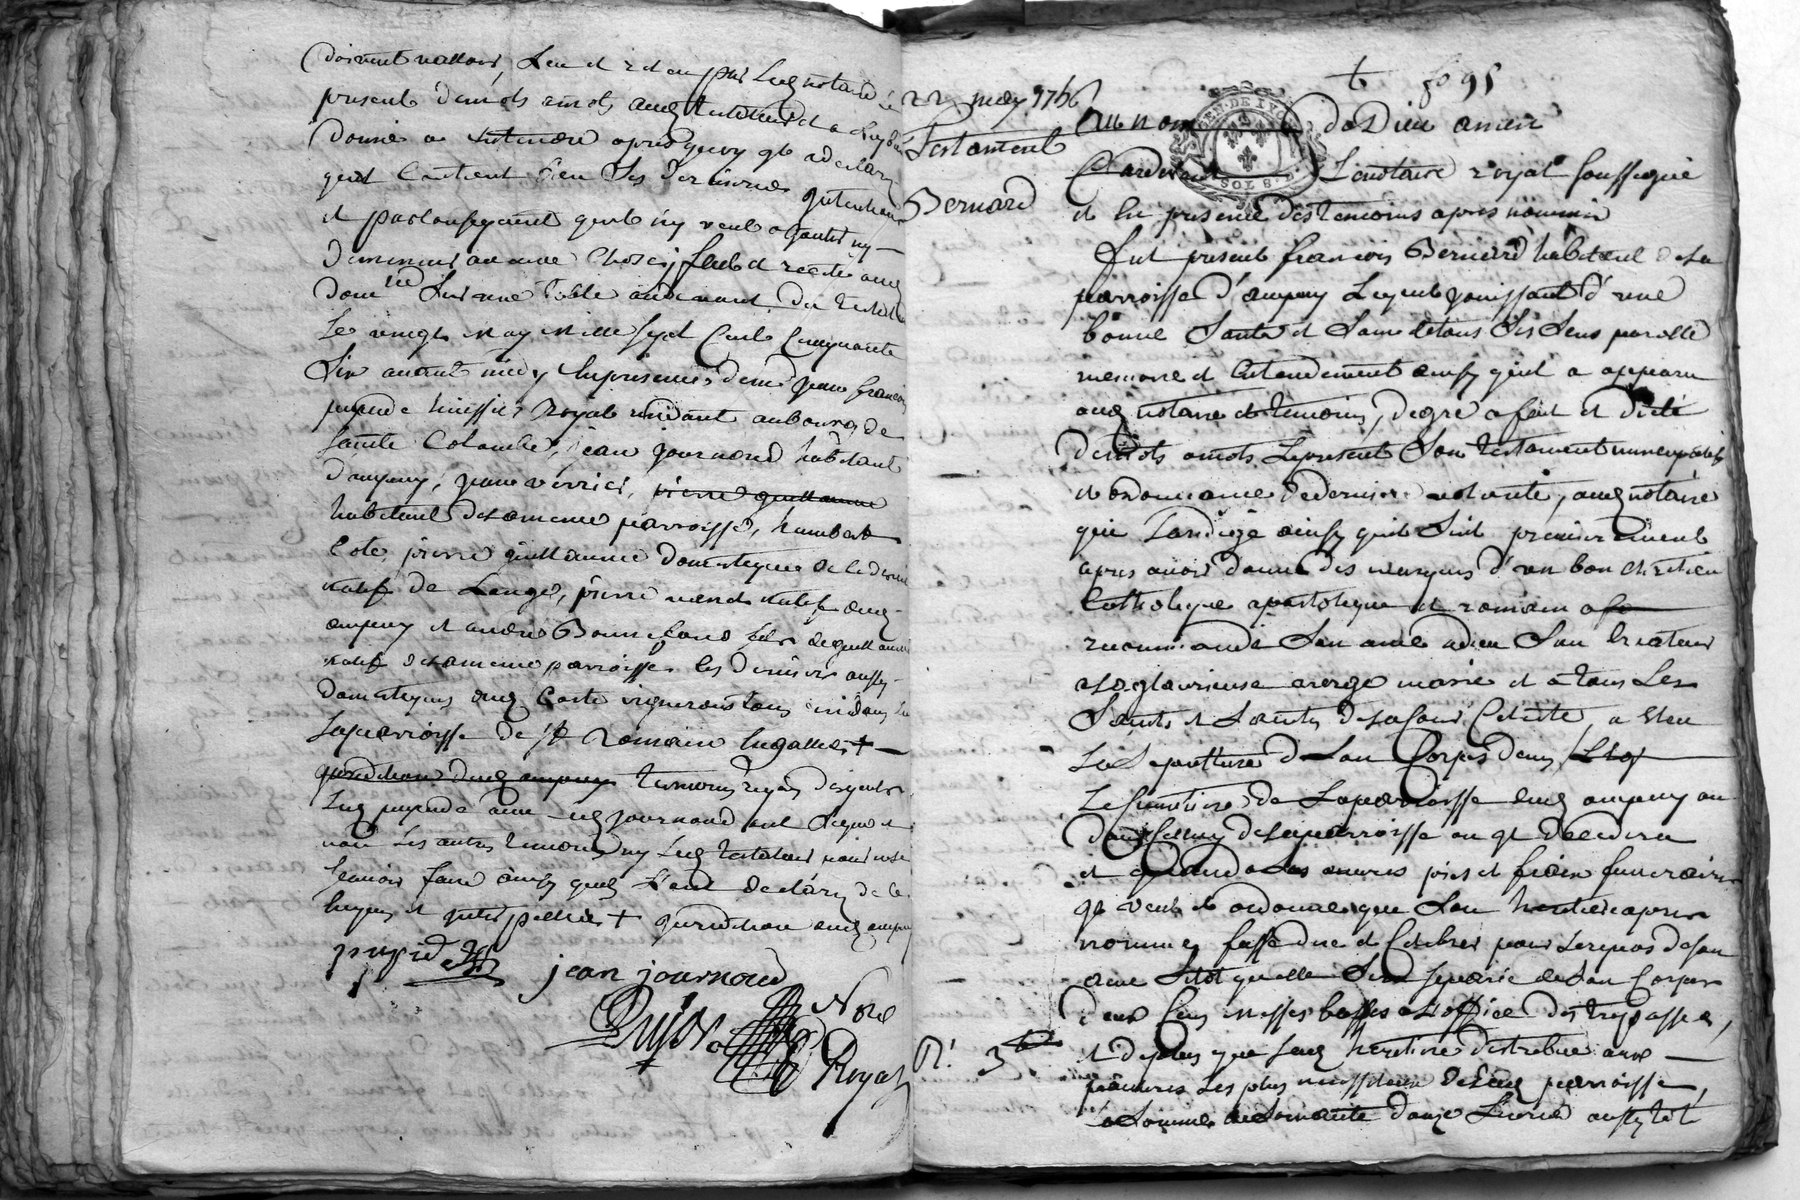 doivent valloir, Leu et relu par Led notaire Le
present de mots a mots aud testateur et a
donné a entendre apres quoy ql a declaré
quil Contient bien Ses dernieres Intentions
et par consequent quil ny veut ajouter ny
diminuer aucune Chose, fait et recité aud
Le vingt May Mille Sept Cent Cinquante
Six avant midy En presence de me Jean francois
huissier Royal residant au bourg de
sainte Colombe, jean Journoud habitant
dampuy, jean verrier, pierre guillaume
habitant de la meme parroisse, humbert
Cote, pierre guillaume domestique
natif de Longes, pierre natif dud
ampuy et andré Bonnefond fils de guillaume
natif de la meme parroisse les derniers aussy
domestiques dud Cote vignerons tous
La parroisse de St Romain En gallier +
jurisdiction dud ampuy temoins requis desquels
Led avec led journoud ont Signé et
non Les autres temoins ny Led testateur pour ne
scavoir faire ainsy quils L'ont declaré de ce
Enquis et Interpellés + jurisdiction dud ampuy
jean journoud
Dujor Nore
Royal
22 may 1756
Testament
Bernard
R. 3
t fo 95
Au nom de Dieu amen
GEN. DE LYON
SOLS
Pardevant Le notaire royal soussigné
et En presence des temoins apres nommés
fut present francois Bernard habitant de la
parroisse d'ampuy Lequel jouissant d'une
bonne Santé et Sain de tous Ses Sens parolle
memoire et Entendement ainsy quil a apparu
aud notaire et temoins, de gré a fait et dicté
de mots a mots Le present Son testament nuncupatif
et ordonnance de derniere volonté, aud notaire
qui La redigé ainsy quil Suit premierement
apres avoir donné des marques d'un bon chretien
Catholique apostolique et romain a
recommandé Son ame a dieu Son Createur
a La glorieuse vierge marie et a tous Les
Saints et Saintes de La Cour Celeste, a Eleu
La Sepulture de Son Corps dans
Le Cimetiere de La parroisse dud ampuy ou
dans Celluy de La parroisse ou ql decedera
et quand a Ses œuvres pies et fraix funeraires
ql veut et ordonne que Son heritier apres
nommé fasse dire et Celebrer pour Le repos de Son
ame Sitot quelle Sera Separée de Son Corps
deux Cens messes basses a L'office des trepassés,
et de plus que Led heritier distribue aux
pauvres Les plus necessiteux de Lad parroisse,
La Somme de Soixante douze Livres aussytot